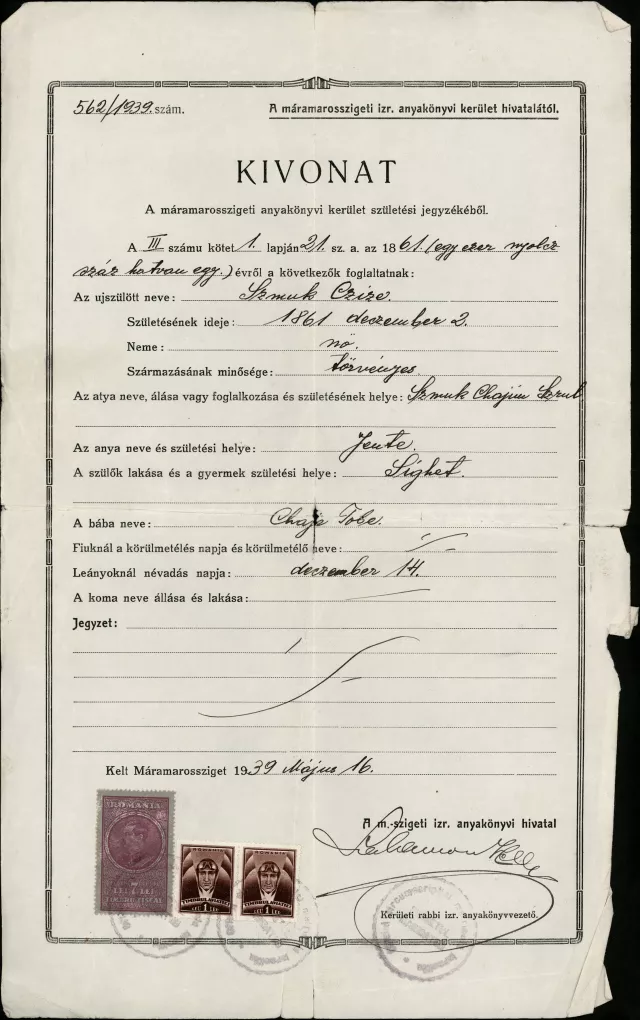 562/1939. szám.
A máramarosszigeti izr. anyakönyvi kerület hivatalától.
KIVONAT
A máramarosszigeti anyakönyvi kerület születési jegyzékéből.
A III számu kötet 1. lapján 21. sz. a. az 1861. (egy ezer nyolcz
száz hatvan egy.) évről a következők foglaltatnak:
Az ujszülött neve: Szmuk Czize.
Születésének ideje: 1861 deczember 2.
Neme: nő.
Származásának minősége: törvényes
Az atya neve, álása vagy foglalkozása és születésének helye: Szmuk Chajim Szrul
Az anya neve és születési helye: Jente.
A szülők lakása és a gyermek születési helye: Sighet.
A bába neve: Chaje Tobe.
Fiuknál a körülmetélés napja és körülmetélő neve:
Leányoknál névadás napja: deczember 14.
A koma neve állása és lakása:
Jegyzet:
Kelt Máramarossziget 1939 Május 16.
A m.-szigeti izr. anyakönyvi hivatal
Kerületi rabbi izr. anyakönyvvezető.
ROMANIA
TIMBRU FISCAL
ROMANIA
TIMBRUL AVIAȚIEI
LEU 1 LEU
ROMANIA
TIMBRUL AVIAȚIEI
LEU 1 LEU